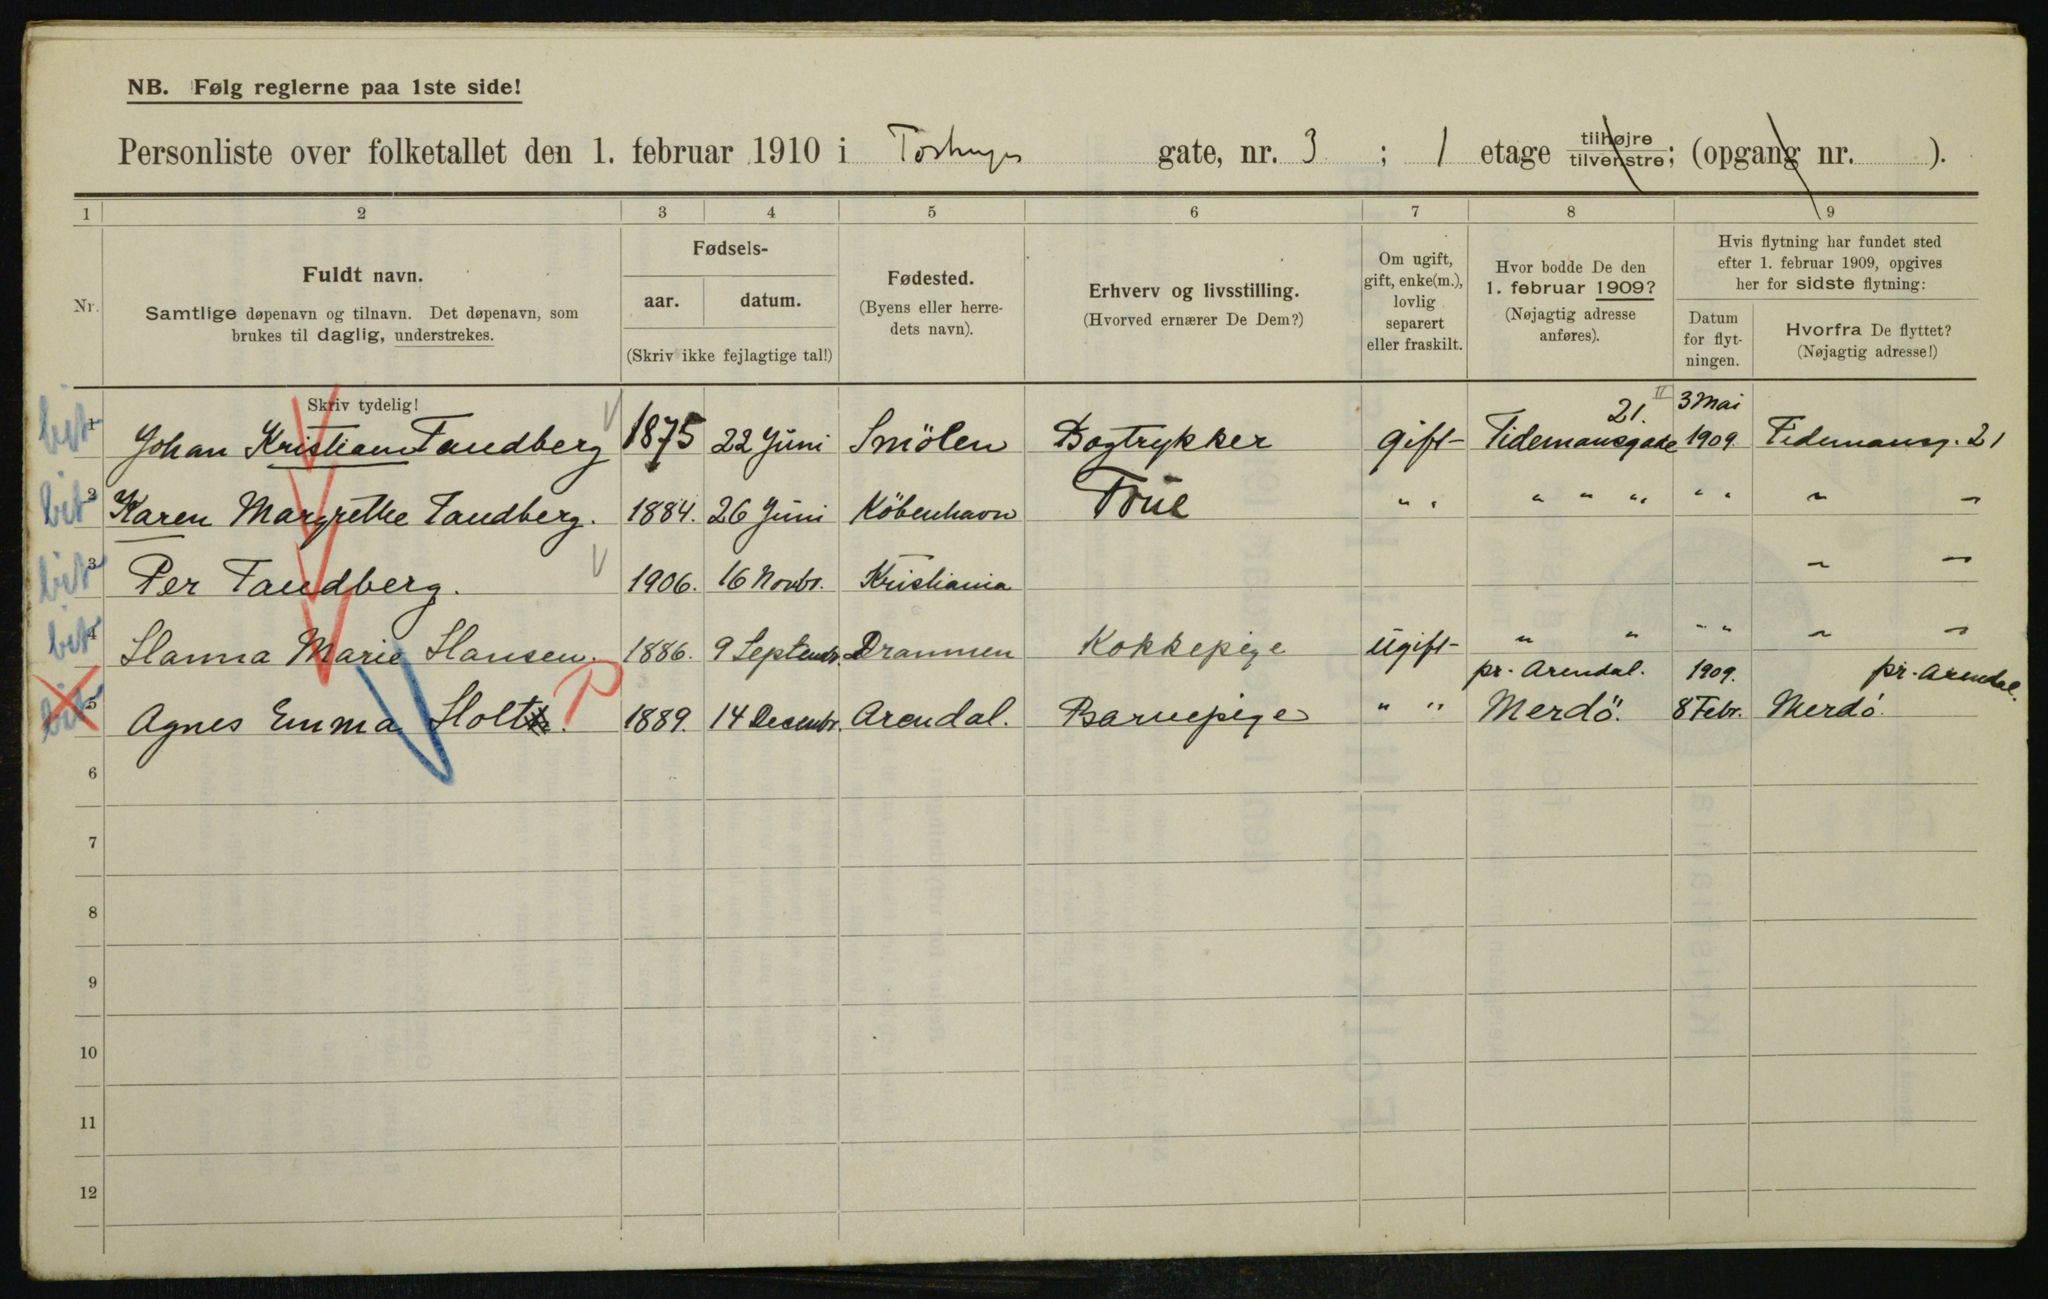 NB. Følg reglerne paa 1ste side!
Personliste over folketallet den 1. februar 1910 i gate, nr. 3 ; 1 etage tilhøjre tilvenstre; (opgang nr. ).
1 2 3 4 5 6 7 8 9
Nr.
Fuldt navn.
Samtlige døpenavn og tilnavn. Det døpenavn, som
brukes til daglig, understrekes.
Fødsels-
aar. datum.
(Skriv ikke fejlagtige tal!)
Fødested.
(Byens eller herre-
dets navn).
Erhverv og livsstilling.
(Hvorved ernærer De Dem?)
Om ugift,
gift, enke(m.),
lovlig
separert
eller fraskilt.
Hvor bodde De den
1. februar 1909?
(Nøjagtig adresse
anføres).
Hvis flytning har fundet sted
efter 1. februar 1909, opgives
her for sidste flytning:
Datum
for flyt-
ningen.
Hvorfra De flyttet?
(Nøjagtig adresse!)
Skriv tydelig!
21. II 3 Mai
bit 1 Johan Kristian Tandberg 1875 22 Juni Smölen Bogtrykker gift Tidemansgade 1909 Tidemansg. 21
bit 2 Karen Margrethe Tandberg. 1884. 26 Juni Köbenhavn Frue " " " " " " " " "
bit 3 Per Tandberg. 1906. 16 Novbr. Kristiania " "
bit 4 Hanna Marie Hansen. 1886. 9 Septembr. Drammen Kokkepige Ugift " " " " " "
pr. Arendal. 1909. pr. Arendal.
bit 5 Agnes Emma Holt. P 1889. 14 Decembr. Arendal. Barnepige " " Merdö. 8 Febr. Merdö.
6
7
8
9
10
11
12